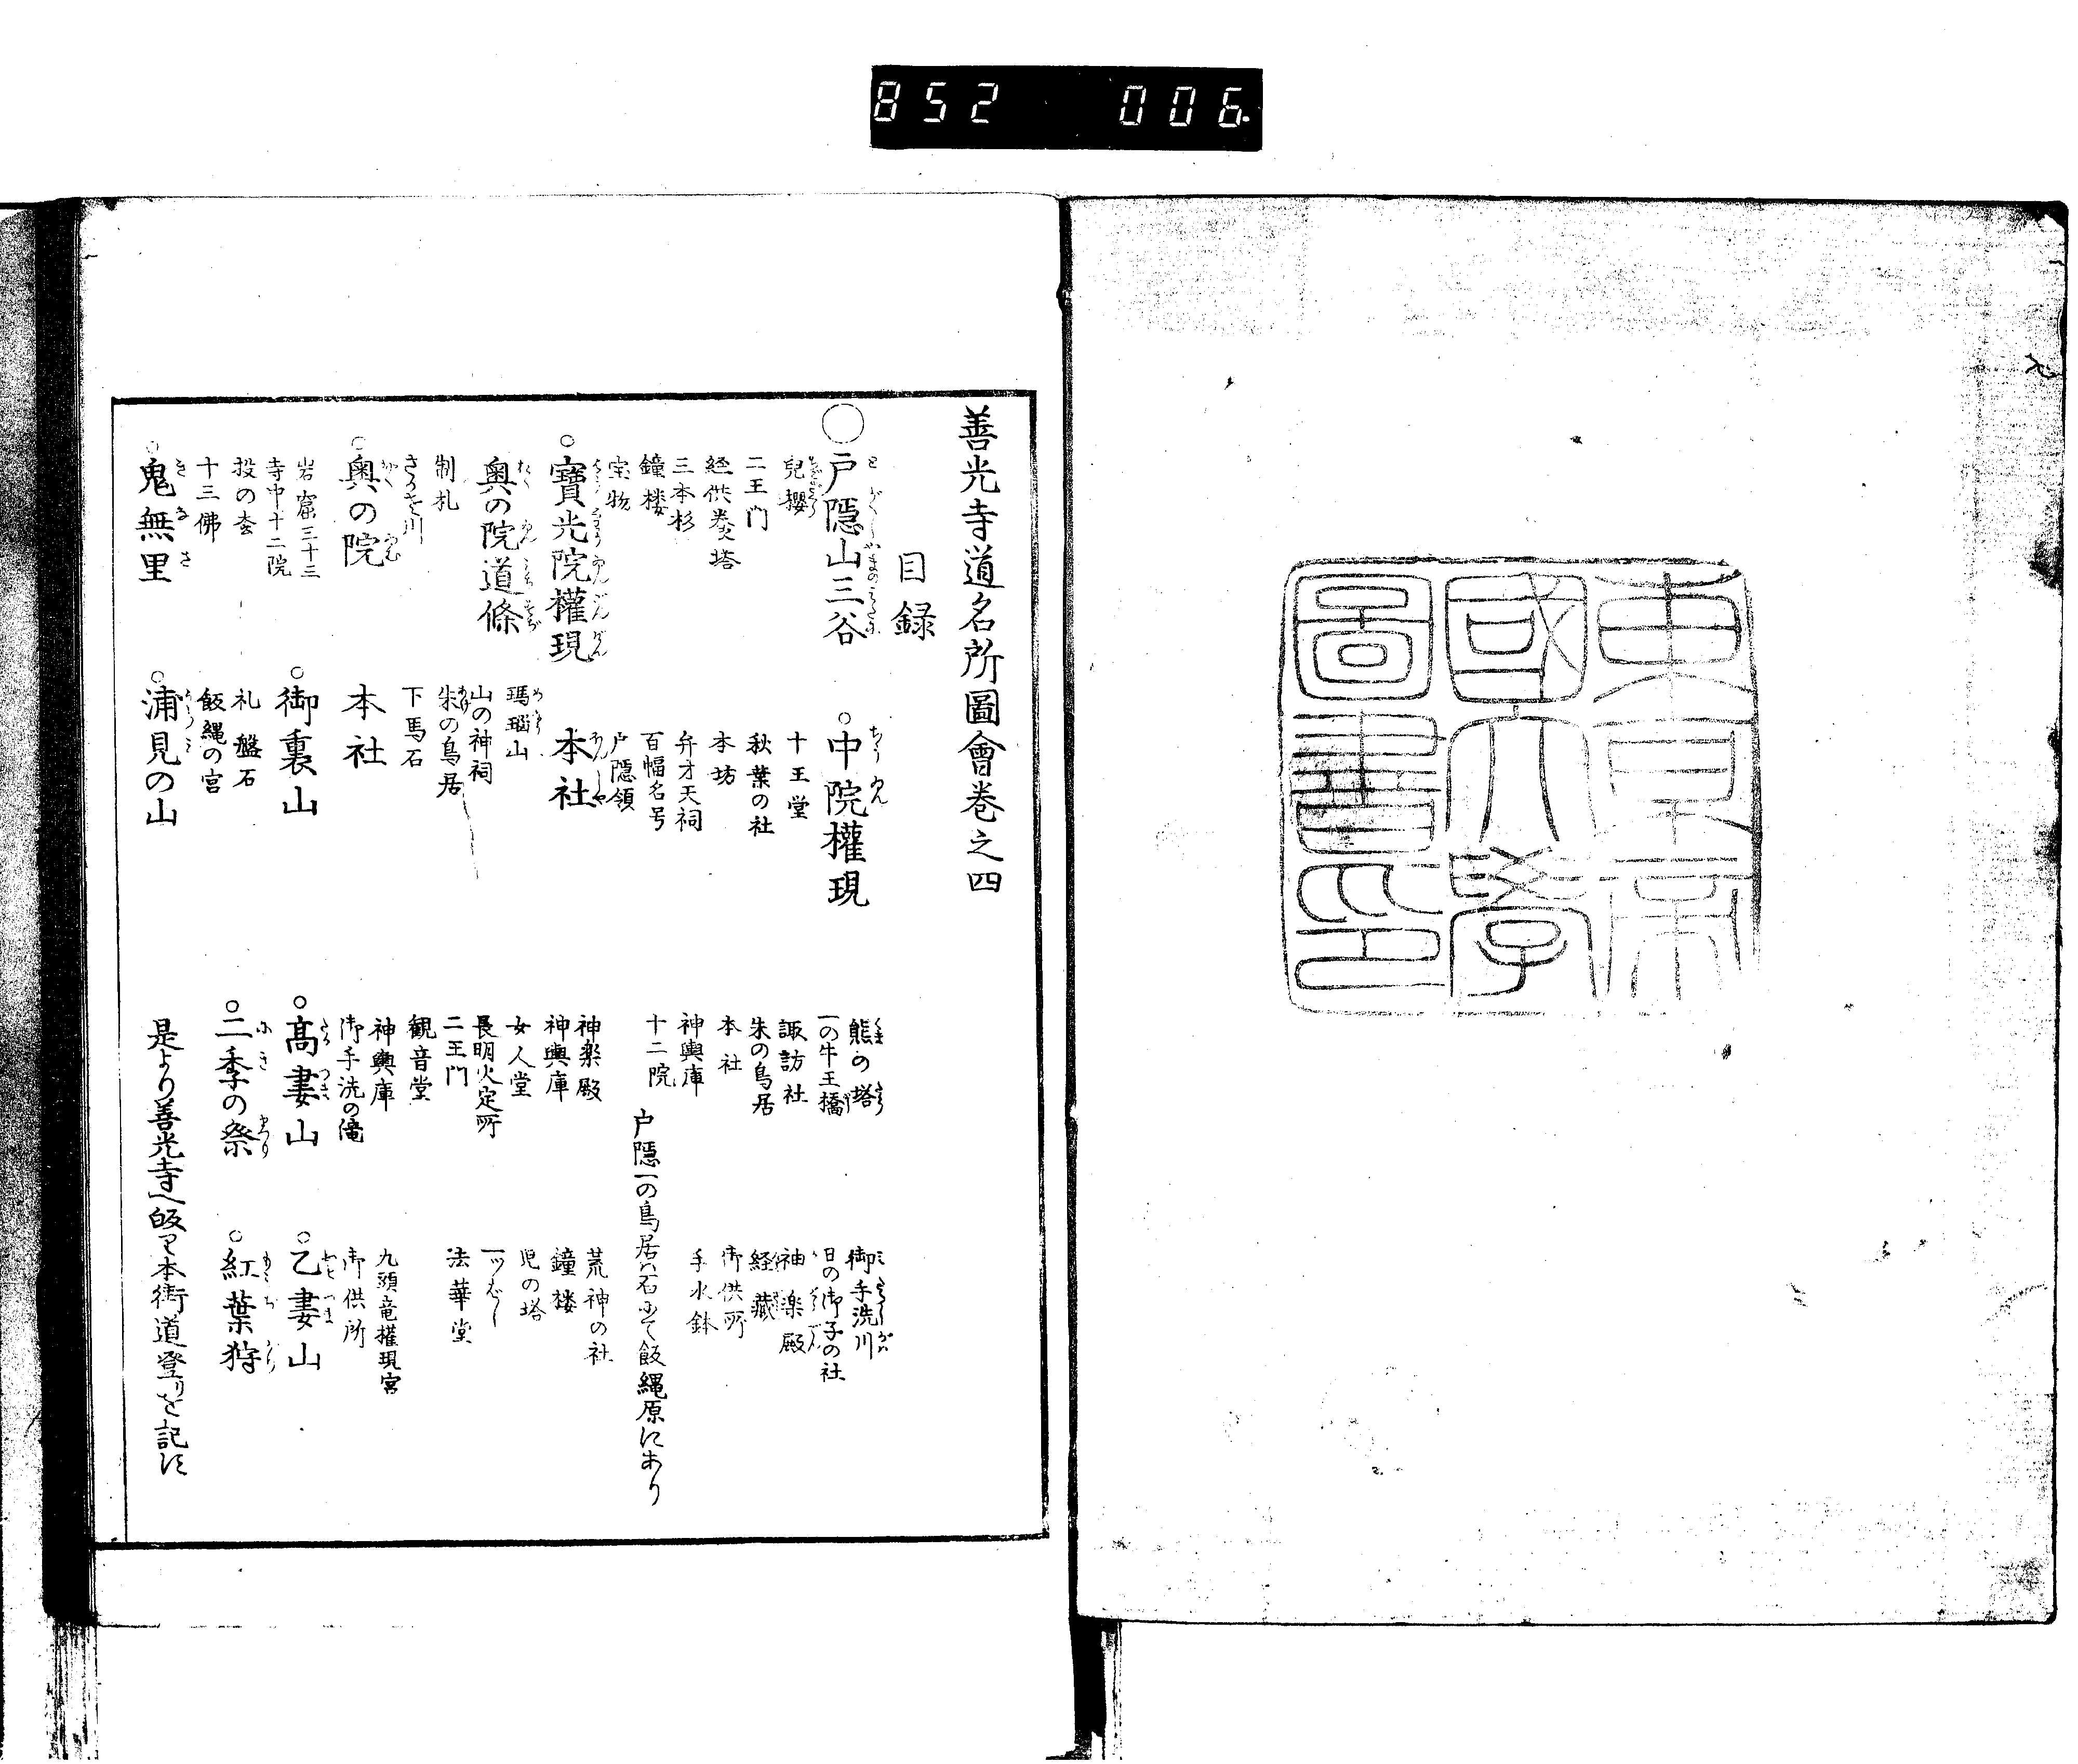 852 006
東京帝
國大學
圖書印
善光寺道名所圖會巻之四
目録
◯戸隠山三谷
○中院權現
熊の塔
御手洗川
一の牛王橋
日の御子の社
兒櫻
十王堂
諏訪社
神楽殿
二王門
秋葉の社
朱の鳥居
経藏
経供養塔
本坊
本社
御供所
三本杉
弁才天祠
神輿庫
手水鉢
鐘楼
百幅名号
十二院
宝物
戸隠領
戸隠一の鳥居ハ石にて飯縄原にあり
○寶光院權現
本社
神楽殿
荒神の社
神輿庫
鐘楼
奥の院道條
瑪瑙山
女人堂
児の塔
山の神祠
長明火定所
一ツばし
制札
朱の鳥居
二王門
法華堂
さかさ川
下馬石
観音堂
○奥の院
本社
神輿庫
九頭竜權現宮
御手洗の滝
御供所
岩窟三十三
○御裏山
○高妻山
○乙妻山
寺中十二院
投の枩
礼盤石
○二季の祭
○紅葉狩
十三佛
飯縄の宮
○鬼無里
○浦見の山
是より善光寺へ皈り本街道登りを記す